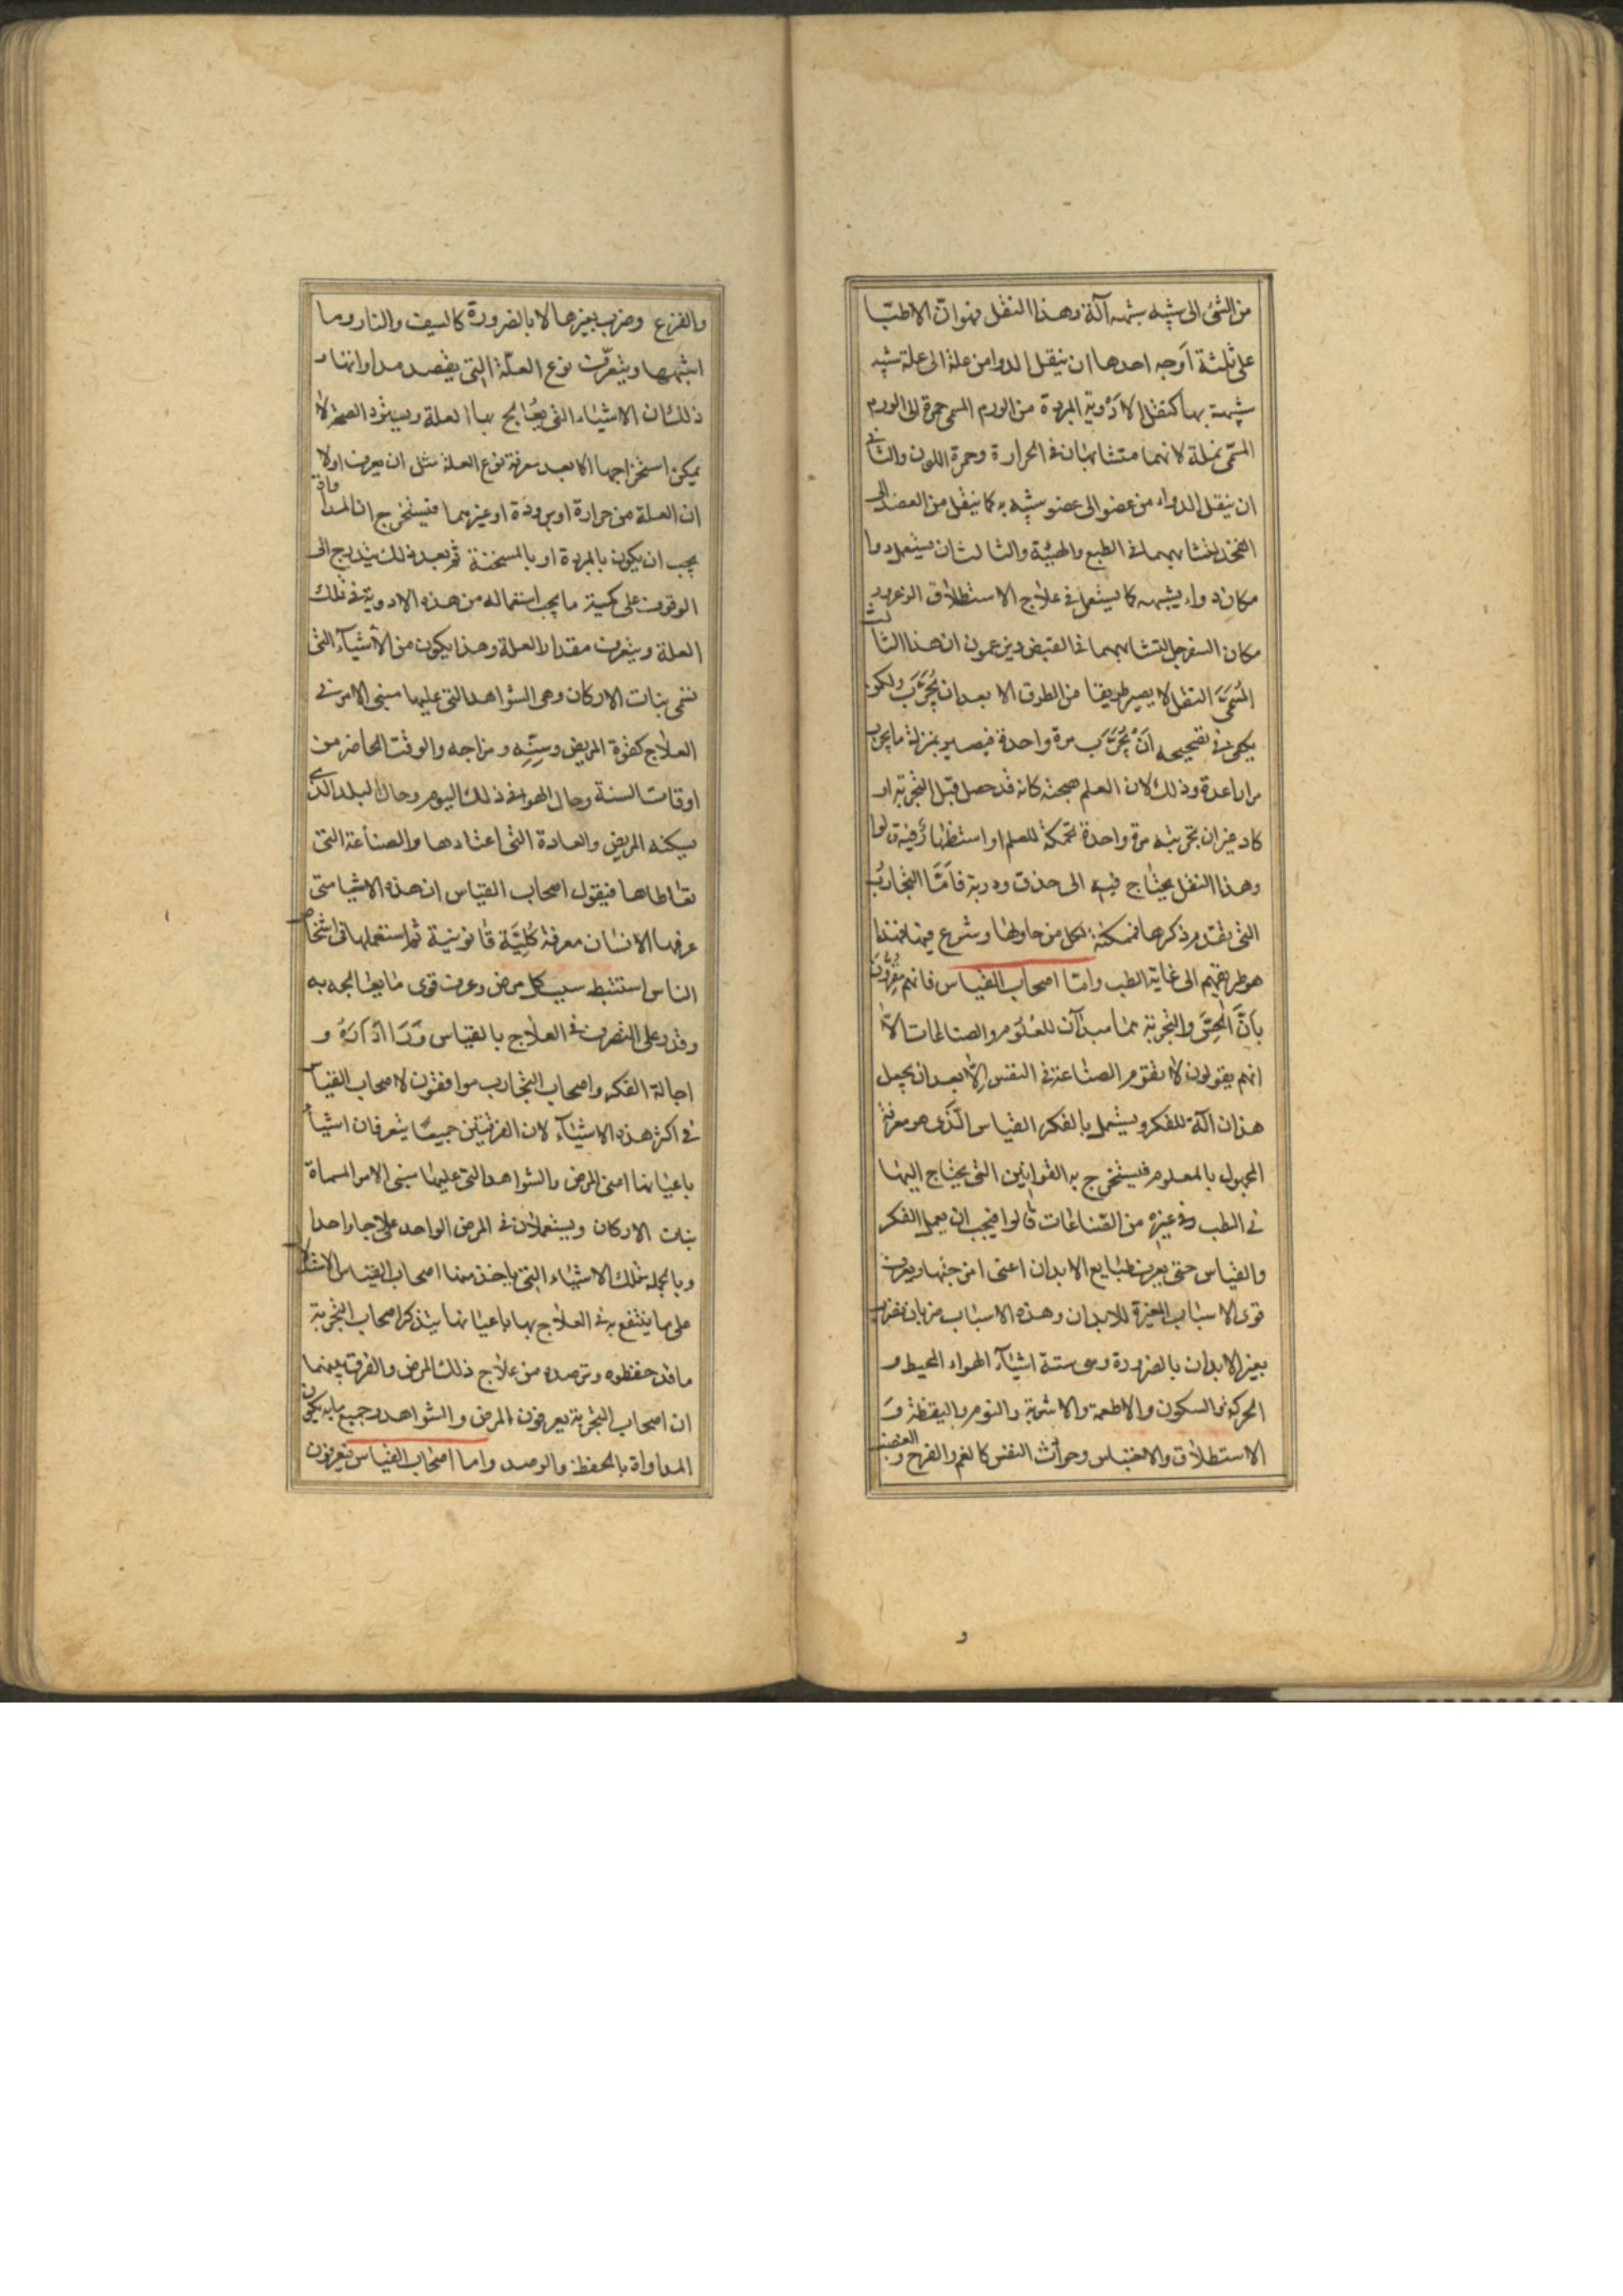 من الشئ الى شبيه شبهه آلة وهذا النقل فهو ان الاطبّا
على ثلثة أوجه احدها ان ينقل الدوا من علة الى علة شبه
شبيهة بها كنقل الادْوية المبردة من الورم المسمى حمرة الى الورم
المسمّى نملة لانهما متشابهان فى الحرارة وحمرة اللون والثانى
ان ينقل الدواء من عضو الى عضو شبيه به كما ينقل من العضد الى
الفخذ لتشابههما فى الطبع والهيئة والثالث ان يستعمل دوا
مكان دواء يشبهه كما يستعمل فى علاج الاستطلاق الزعرور
مكان السفرجل لتشابههما فى القبض ويزعمون ان هذا الثالث
المُسَمَّىَ النقل لا يصير طريقا من الطرق الا بعد ان يُجَرَّبَ ولكن
يكفى فى تصحيحه أَنْ يُجَرَّبَ مرة واحدة فيصير بمنزلة ما يجرب
مرارا عدة وذلك لان العلم بصحته كانه قد حصل قبل التجربة او
كاد غير ان تجربته مرة واحدة للعلم او استظهار فيه قالوا
وهذا النقل يحتاج فيه الى حذق ودربة فأمّا التجارب
التى تقدم ذكرها فممكنة لكل من حاولها وشرع فيها فهذا
هو طريقهم الى غاية الطب وامّا اصحاب القياس فانهم مقرّون
بأنَّ الحِسَّ والتجربة هما مبدآن للعُلُوم والصناعات الاّ
انهم يقولون لا تقوم الصناعة فى النفس إلاّ بعد ان يجعل
هذان آلة للفكر ويستعمل بالفكر القياس الّذى هو معرفة
المجهول بالمعلوم فيستخرج به القوانين التى يحتاج اليها
فى الطب وفى غيره من الصّناعات قالوا فيجب ان يعمل الفكر
والقياس حتى يعرف طبايع الابدان اعنى امزجتها ويعرف
قوى الاسباب المغيرة للابدان وهذه الاسباب ضربان فضرب
يغير الابدان بالضرورة وهى ستة اشياء الهواء المحيط و
الحركة والسكون والاطعمة والاشربة والنوم واليقظة وَ
الاستطلاق والاحتباس وحوادث النفس كالغم والفرح والغضب
والفزع وضرب يغيرها لا بالضرورة كالسيف والنار وما
اشبهها ويتعرّف نوع العلّة التى يقصد مداواتها و
ذلك ان الاشياء التى يعُالج بها العلة ويستردّ الصحة لا
يمكن استخراجها الا بعد معرفة نوع العلة مثل ان يعرف اولا
ان العلة من حرارة او برودة او غيرهما فيستخرج ان المداواة
يجب ان يكون بالمبردة او بالمسخنة ثم بعد ذلك يتدرج الى
الوقوف على كمية ما يجب استعماله من هذه الادوية فى تلك
العلة ويتعرف مقدار العلة وهذا يكون من الأشياء التى
تسمى بنات الاركان وهى الشواهد التى عليها مبنى الامر فى
العلاج كقوة المريض وسِنِّه ومزاجه والوقت الحاضر من
اوقات السنة وحال الهوا فى ذلك اليوم وحال البلد الذى
يسكنه المريض والعادة التى اعتادها والصناعة التى
تعاطاها فيقول اصحاب القياس ان هذه الاشيا متى
عرفها الانسان معرفة كُلِيَّة قانونية ثم استعملها فى اشخاص
الناس استنبط سبب كل مرض وعرف قوى ما يعالجه به
وقدر على التصرف فى العلاج بالقياس و
اجالة الفكر واصحاب التجارب موافقون لاصحاب القياس
فى اكثر هذه الاشياء لان الفرقتين جميعًا يتعرفان اشياء
باعيانها اعنى المرض والشواهد التى عليها مبنى الامر المسماة
بنات الاركان ويستعملان فى المرض الواحد علاجا واحدا
وبالجملة فتلك الاشياء التى ياخذ منها اصحاب القياس الاستدلال
على ما ينتفع به فى العلاج بها باعيانها يتذكر اصحاب التجربة
ما قد حفظوه ورصدوه من علاج ذلك المرض والفرق بينهما
ان اصحاب التجربة يعرفون المرض والشواهد وجميع ما به يكون
المداواة بالحفظ والرصد واما اصحاب القياس فيعرفون
و